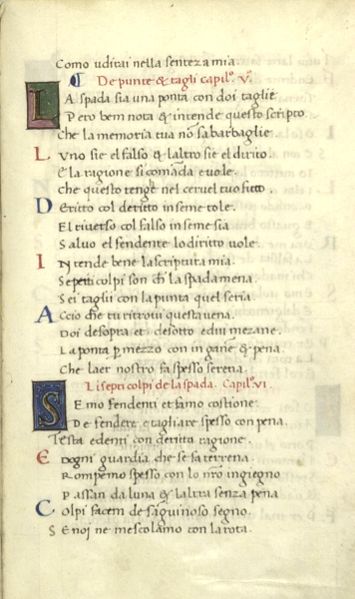 Como udirai nella senteza mia.
¶ De punte & tagli capilo. V.
LA spada sia una ponta con doi taglie
Pero bem nota & intende questo scripto
Che la memoria tua nō sa barbaglie.
Luno sie el falso & laltro sie el dirito
E la ragione si comāda e uole.
Che questo tenge nel ceruel tuo fitto.
Deritto col deritto inseme tole.
El riuerso col falso inseme sia
Saluo el fendente lo diritto uole.
INtende bene la scriptura mia.
Se pētti colpi son ch̄ la spada mena.
Sei tagli con la punta quel seria
Accio che tu ritroui questa uena.
Doi desopra et desotto e dui mezane.
La ponta p̱ mezzo con ingane & pena.
Che laer nostro fa spesso serena.
Li septi colpi de la spada. Capilo. VI
SEmo fendenti et famo costione
De fendere e tagliare spesso con pena.
Testa e denti con deritta ragione.
Eᴅogni guardia che se fa terrena
Rompemo spesso con lo nr̄o ingiegno
Passan da luna & laltra senza pena
Colpi facem de sāguinoso segno.
Se noi ne mescolamo con la rota.